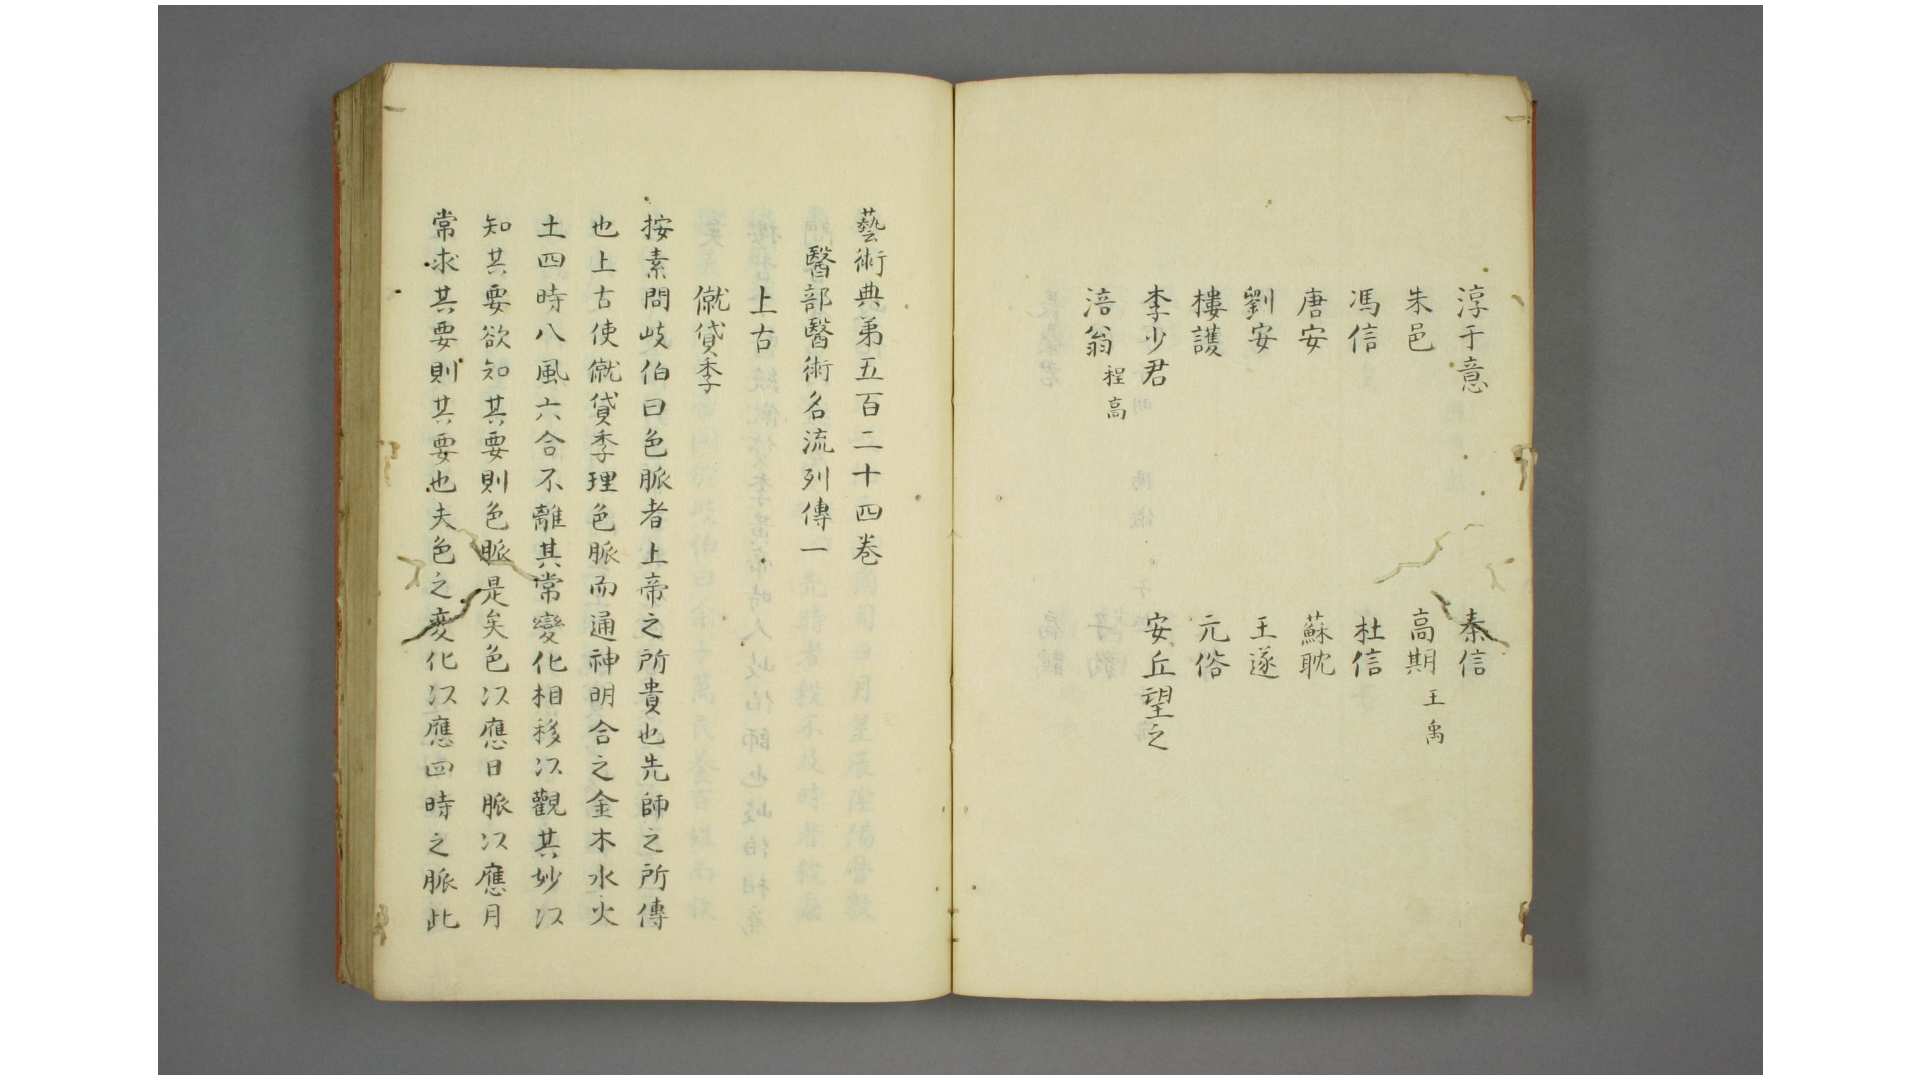 淳于意　秦信
朱邑　高期 王禹
馮信　杜信
唐安　蘇耽
劉安　王遂
樓護　元俗
李少君　安丘望之
涪翁 程高
藝術典第五百二十四巻
醫部醫術名流列傳一
上古
僦貸季
按素問岐伯曰色脈者上帝之所貴也先師之所傳
也上古使僦貸季理色脈而通神明合之金木水火
土四時八風六合不離其常變化相移以觀其妙以
知其要欲知其要則色脈是矣色以應日脈以應月
常求其要則其要也夫色之変化以應四時之脈此